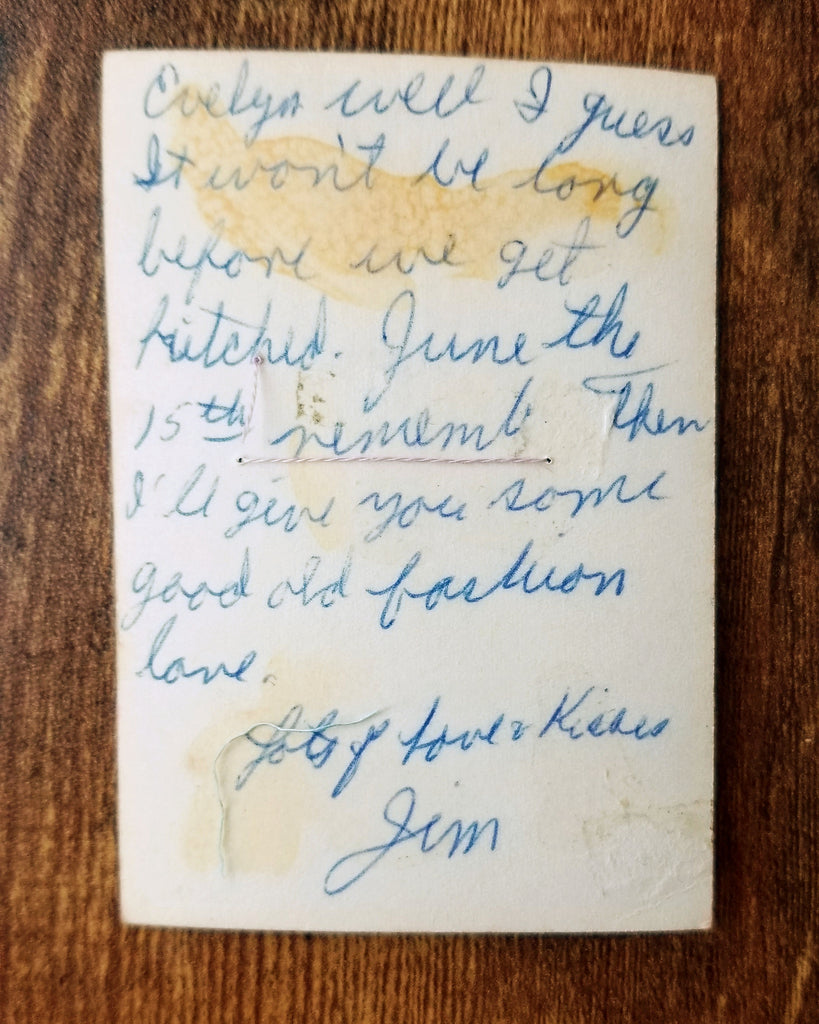 Evelyn well I guess
It won't be long
before we get
hitched. June the
15th rememb Then
I'll give you some
good old fashion
love.
Lots of Love & Kisses
Jim